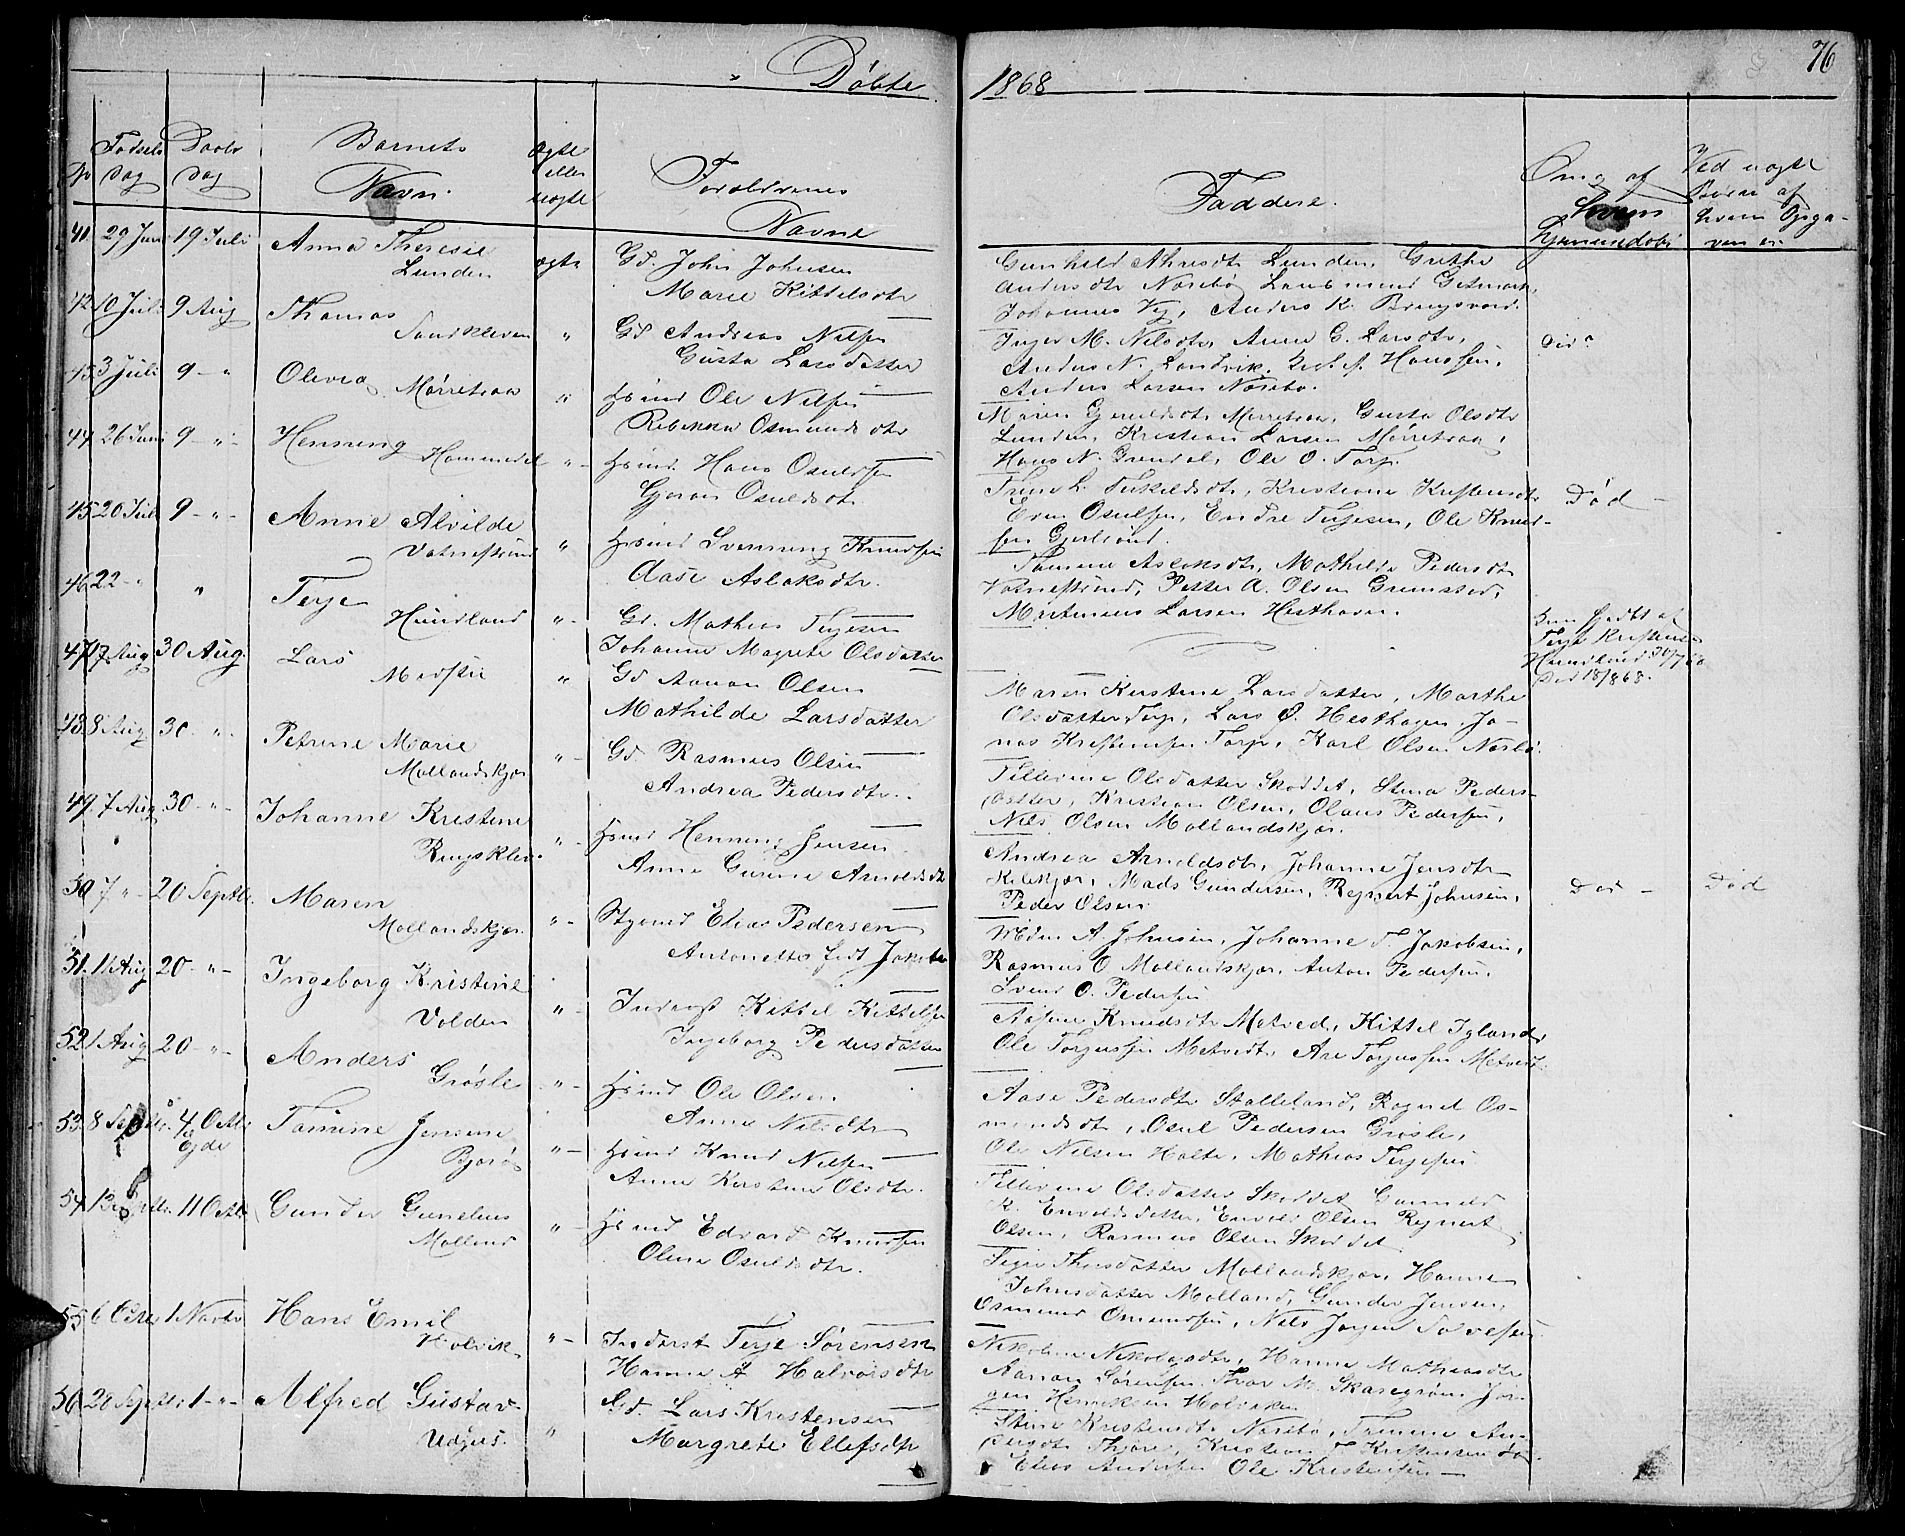 Døbte
1868
76
No
Fødsels Dag
Daabs Dag
Barnets Navn.
ægte eller uægte
Forældrenes Navne
Faddere.
Om og af hvem hjemmedøbt
Ved uægte Børn af hvem Opga-
ven er
41. 29 Juni 19 Juli Anna Theresie
Lunden ægte
Gd. John Johnsen
Marie Kittelsdtr
Gunhild Ahresdtr Lunden, Grethe
Andersdtr Nørebø
Johannes Vej, Anders K. Bringsvord.
42 10 Juli 9 Aug Thomas
Sandkleven "
Gd Andreas Nilsen
Gusta Larsdatter
Inger M. Nilsdtr, Anne G. Larsdtr,
Anders N. Landvik, Hanssen,
Anders Larsen Nørebø.
Død
43. 3 Juli 9 - " Olivia
Mørretraa "
Hsmd Ole Nilsen
Rebekka Osmundsdtr
Maren Mørretraa, Gusta Olsdtr
Lunden, Kristian Larsen Mørretraa,
Hans N. Grendal, Ole O. Torp.
44. 26 Juni 9 - " - Henning
Hommedal " -
Hsmd. Hans Osuldsen
Gjøran Osuldsdtr.
Trine L. Terkildsdtr, Kristiane Kristensdtr
Even Osulsen, Endre Terjesen, Ole Knud-
sen
Død -
45 20 Juli 9 - " - Anne Alvilde
Vatnestrund "
Hsmd Svenning Knudsen
Aase Aslaksdtr.
Tomine Aslaksdtr, Mathilde Pedersdtr
Vatnestrund, Petter A. Olsen Grimstad,
Mortenius Larsen Hesthaven.
46. 22 - " " Terje
Hundland " -
Gd. Mathias Terjesen
Johanne Magrete Olsdatter
Terje Kristensen
Hundland 30/7 68
Død 18/8 68.
47 17 Aug 30 Aug. Lars
Medstie "
Gd Aanon Olsen
Mathilde Larsdatter
Maren Kirstine Larsdatter, Marthe
Olsdatter Torp, Lars O. Hesthagen, Jo-
nas Kristensen Torp, Karl Olsen Nørebø.
48. 8 Aug 30. " . Petrine Marie
Mollandskjær " -
Gd. Rasmus Olsen
Andrea Pedersdtr.
Tellevine Olsdatter Skoddet, Stina Peders-
datter, Kristian Olsen, Olaus Pedersen,
Nils Olsen Mollandskjær.
49. 7 Aug 30 - " - Johanne Kristine
Ringsklev. " -
Hsmd Henning Jensen
Anne Gurine Arnoldsdtr
Andrea Arnoldsdtr, Johanne Jensdtr
Kilekjær, Mads Gundersen, Reynert Johnsen,
Peder Olsen
50. 7 " - 20 Septbr. Maren
Mollandskjær. " -
Elias Pedersen
Antonette født Jakobs
A. Johnsen, Johanne T. Jakobsen,
Rasmus O. Mollandskjær, Anton Pedersen,
Svend O. Pedersen
Død - Død
51. 11 Aug 20 - " - Ingeborg Kristine
Volden " -
Inderst Kittel Kittelsen
Ingeborg Pedersdatter
Aasine Knudsdtr Metved, Kittel Igland,
Ole Torgussen Metvedt, Are Torgussen Metvedt
52. 1 Aug 20 - " - Anders
Grøsle . " -
Hsmd Ole Olsen
Anne Nilsdtr
Aase Pedersdtr Stalleland, Ragnil Os-
mundsdtr, Osul Pedersen Grøsle,
Ole Nilsen Holte, Mathias Terjesen
53. 8 Septbr. 4 Octbr
Ejde Tomine Jensine
Bjorø " -
Hsmd Knud Nilsen
Anne Kirstine Olsdtr.
Tellevine Olsdatter Skoddet, Gunnild
K. Envoldsdatter, Envold Olsen, Reynert
Olsen, Rasmus Olsen Skoddet
54. 13 Septbr. 11 Octbr. Gunder Gunelius
Molland " -
Hsmd Edvard Knudsen
Oline Osuldsdtr.
Mollandskjær, Hanne
Johnsdatter Molland, Gunder Jensen,
Osmund Omundsen, Nils Jørgen
55 6 Octbr 1 Novbr Hans Emil
Holvik " -
Inderst Terje Sørensen
Hanne A Halvorsdtr
Nikoline Nikolajsdtr, Hanne Mathiasdtr
Aanon Sørensen, Thor M. Skaregrøm, Jør-
gen Henriksen Holviken
56 20 Septbr. 1 - " - Alfred Gustav
Udjus. "
Gd. Lars Kristensen
Margrete Ellefsdtr
Stine Kristensdtr Nørebø, Tomine An-
dersdtr Thjøre, Kristian T. Kristensen
Elias Andersen Ole Kristensen -